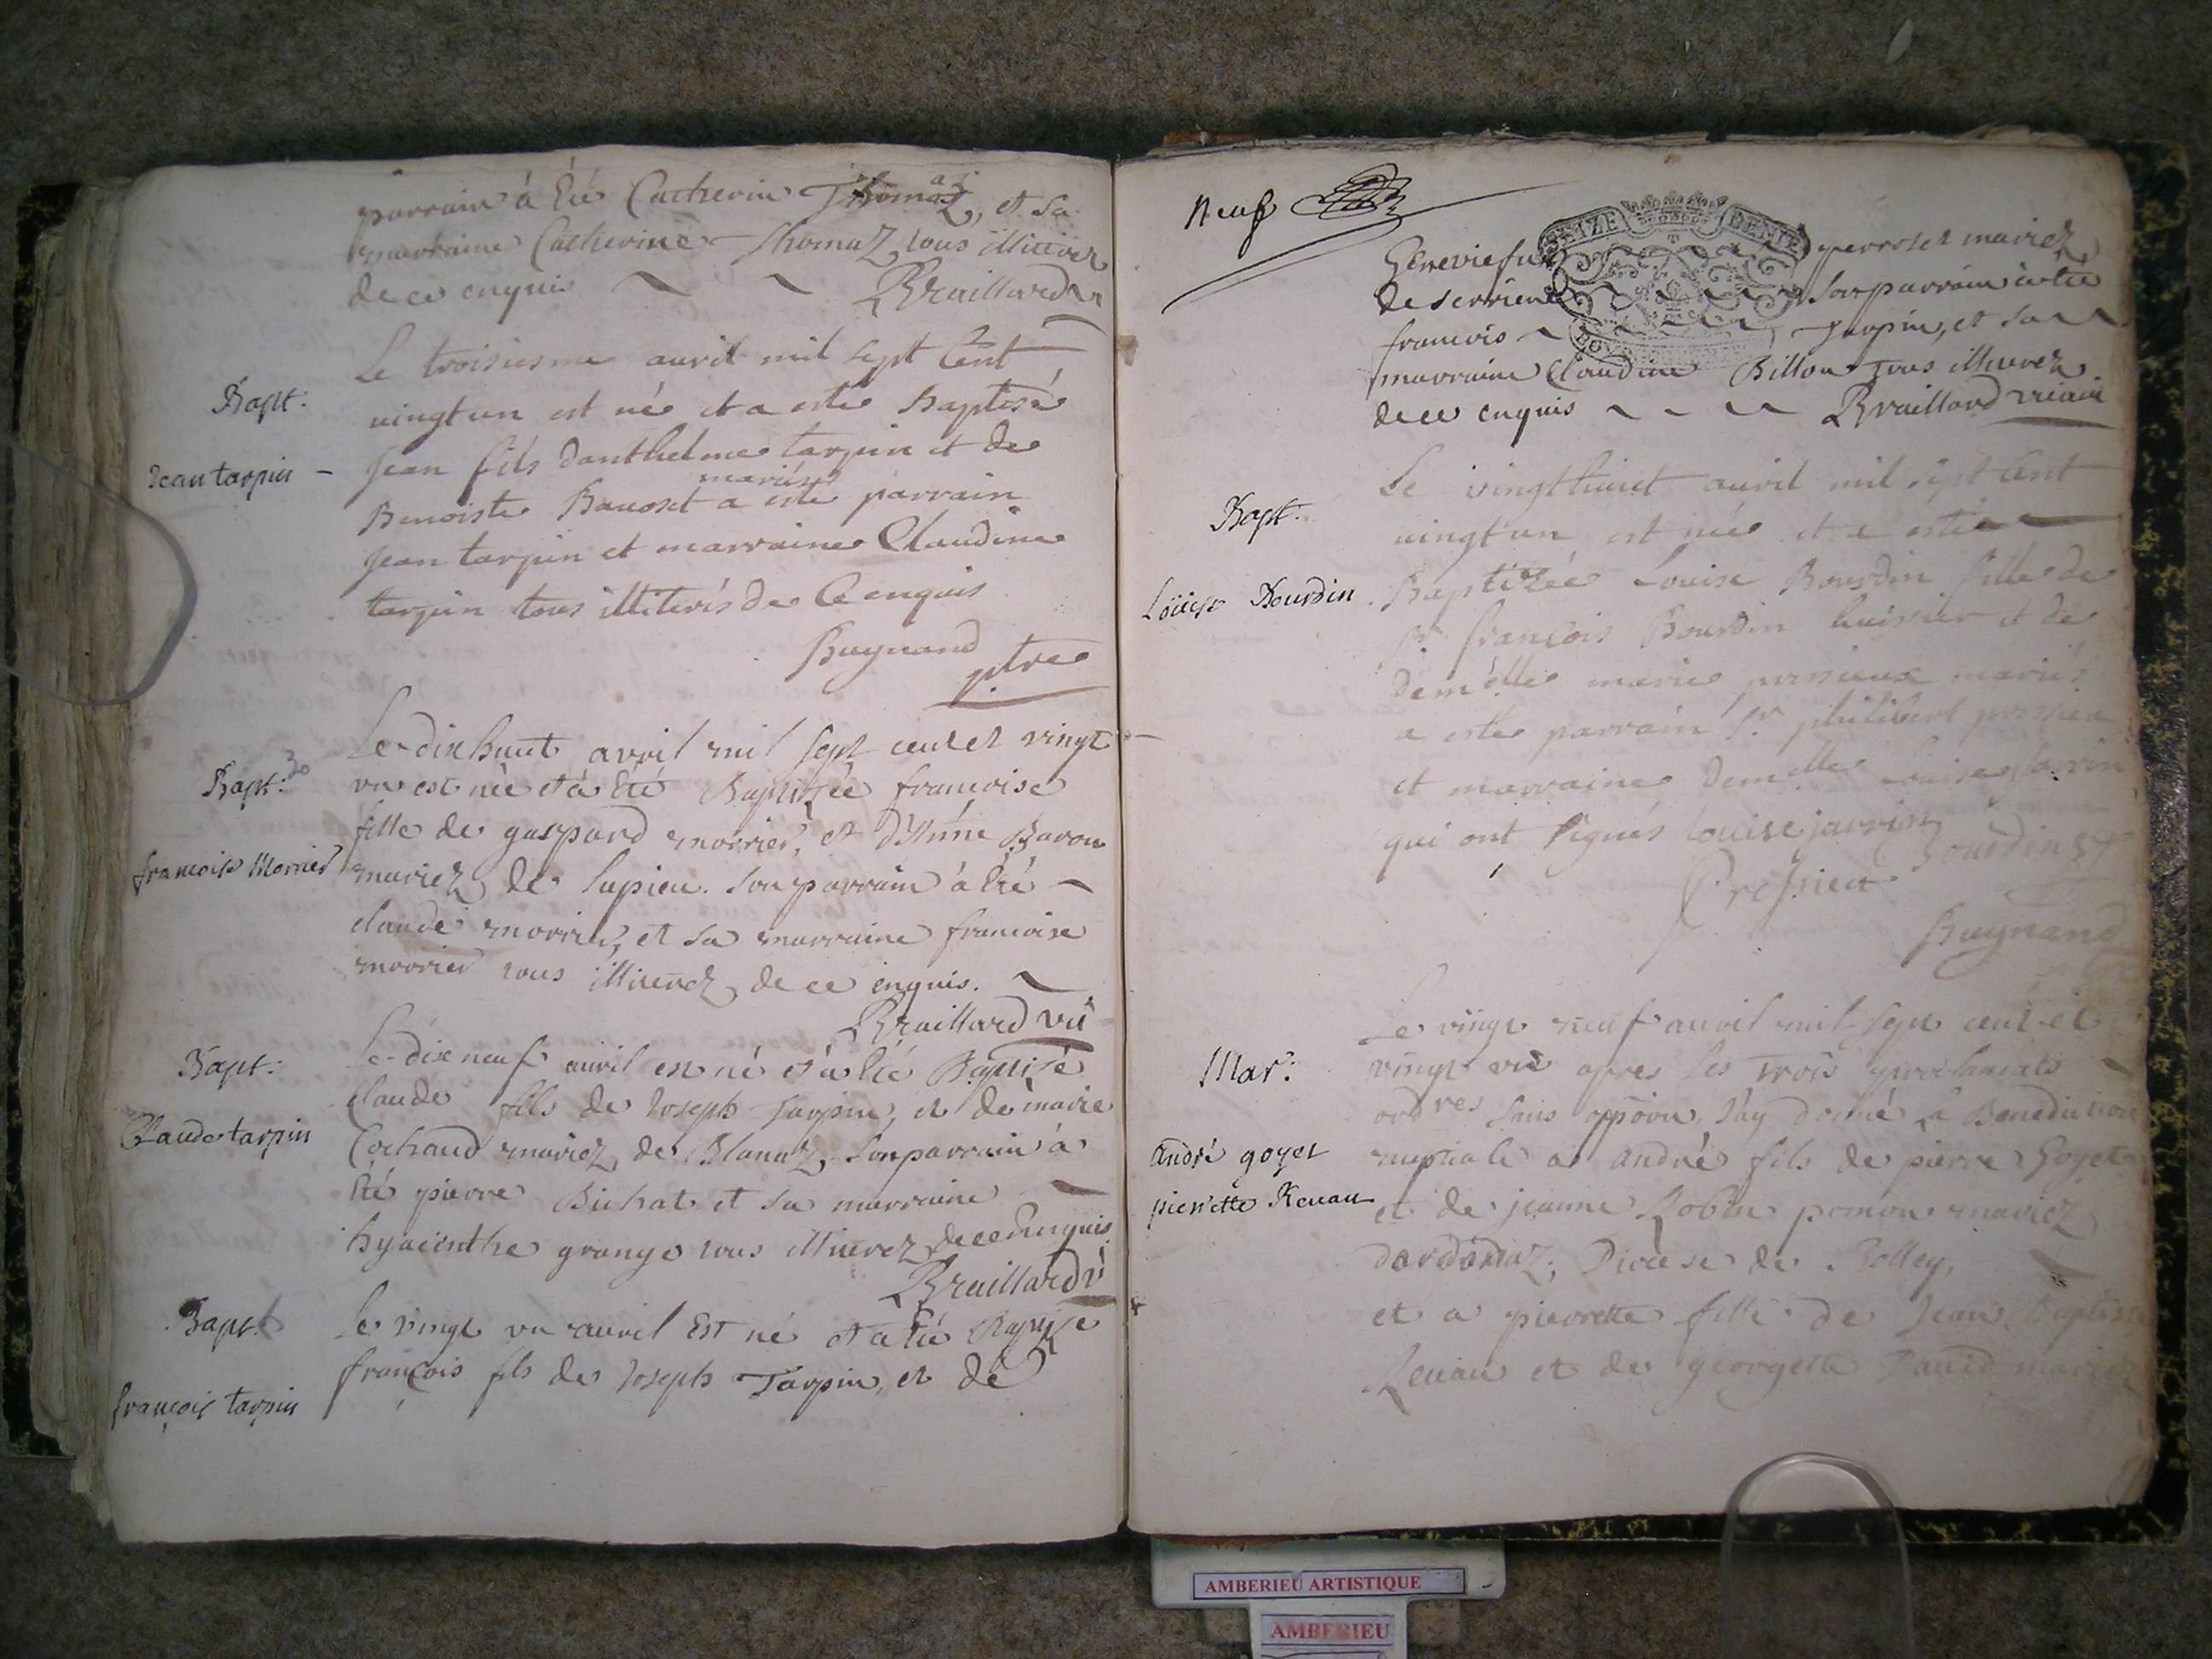 parrain à été Catherin Thomaz, et sa
marraine Catherine Thomaz, tous illiterez
de ce enquis Braillard
Bapt:
Jean tarpin -
Le troisiesme auril mil sept Cent
uingt un est né et a esté Baptisé
Jean fils danthelme tarpin et de
mariés
Benoiste a esté parrain
Jean tarpin et marraine Claudine
tarpin tous illiterés de Ce enquis
Buynand
ptre
Bapt:
francoise Morrier
Le dix huit avril mil sept cent et vingt
vn est née et à été Baptizée francoise
fille de gaspard morrier, et d'Anne Baron
mariez de lupieu. Son parrain à été
claude morrier, et sa marraine francoise
morrier tous illiterez de ce enquis.
Braillard
Bapt:
Claude tarpin
Le dix neuf auril est né et à été Baptisé
Claude fils de Joseph Tarpin, et de marie
Cochaud mariez de Blanaz, Son parrain à
été pierre Bichat et sa marraine
hyacinthe grange tous illiterez de ce enquis.
Braillard
Bapt.
françois tarpin
Le vingt vn auril Est né et a été Baptizé
françois fils de Joseph Tarpin, et de
Neuf
SEIZE DENIE
Geneviefue perroset mariez
de serriere Son parrain à été
francois Tarpin, et sa
marraine Claudine Billon Tous illiterez
de ce enquis Braillard vicaire
Bapt.
Loüise Bourdin
Le vingthuict auril mil sept Cent
uingt un est née et a estée
Baptizée Louise Bourdin fille de
Sr. françois Bourdin huissier et de
demelle marie pressieux mariés
a esté parrain Sr. philibert
et marraine demelle Louise Jarrin
qui ont signés louise jarrin
Bourdin
Pressieu
Buynand
Mar:
André goyet
pierrette Reuau
Le vingt neuf auril mil sept cent et
vingt vn apres les trois proclamats
ordres sans oppõon, J'ay donné la Benediction
nuptiale a André fils de pierre Goyet
et de jeanne Robin mariez
dardonaz, Diocese de Belley,
et a pierrette fille de Jean Baptiste
Reuau et de georgette Dauid mariez
AMBERIEU ARTISTIQUE
AMBERIEU